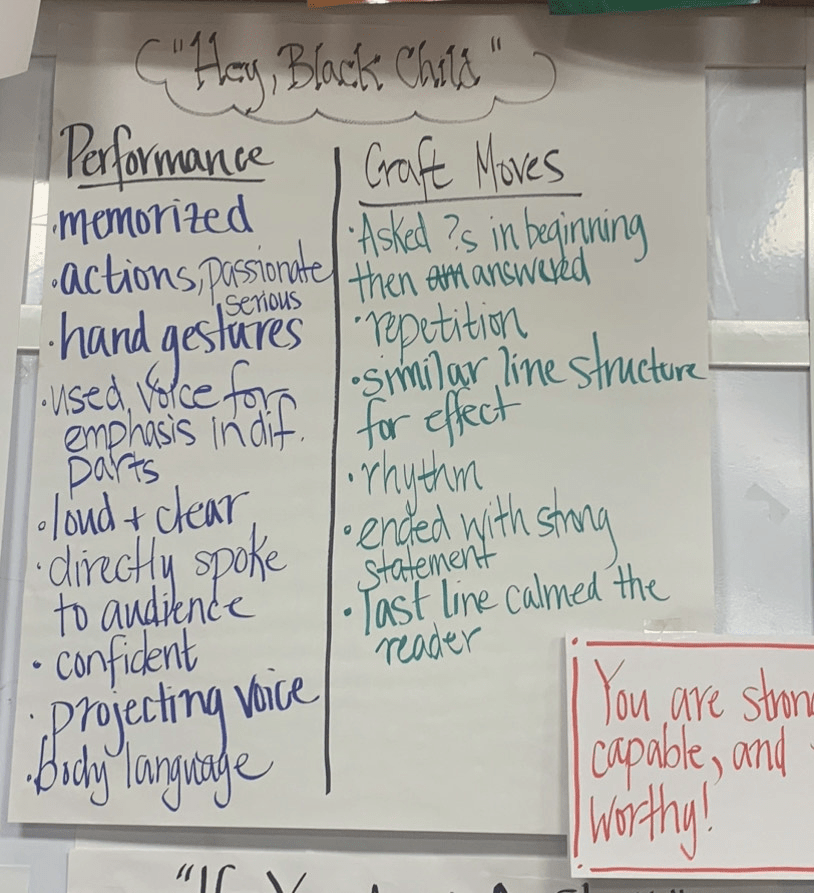 "Hey, Black Child"
Performance
·memorized
·actions, passionate
serious
·hand gestures
·used voice for
emphasis in dif.
parts
·loud + clear
·directly spoke
to audience
·confident
·projecting voice
·body language
Craft Moves
·Asked ?s in beginning
then answered
·repetition
·similar line structure
for effect
·rhythm
·ended with strong
statement
·last line calmed the
reader
You are stron
capable, and
worthy!
"If